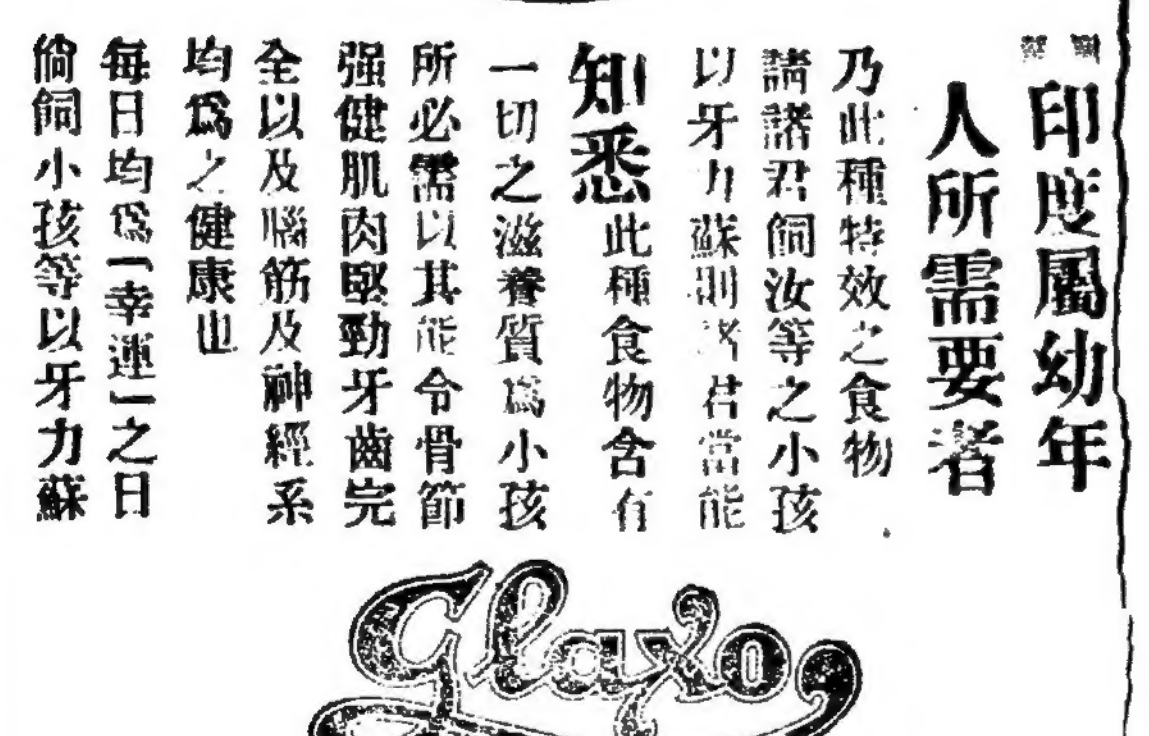 印度屬幼年
人所需要者
乃此種特效之食物
請諸君飼汝等之小孩
以牙力蘇則諸君當能
知悉此種食物含有
一切之滋養質爲小孩
所必需以其能令骨節
强健肌肉堅勁牙齒完
全以及腦筋及神經系
均爲之健康也
每日均爲「幸運」之日
倘飼小孩等以牙力蘇
Glaxo,